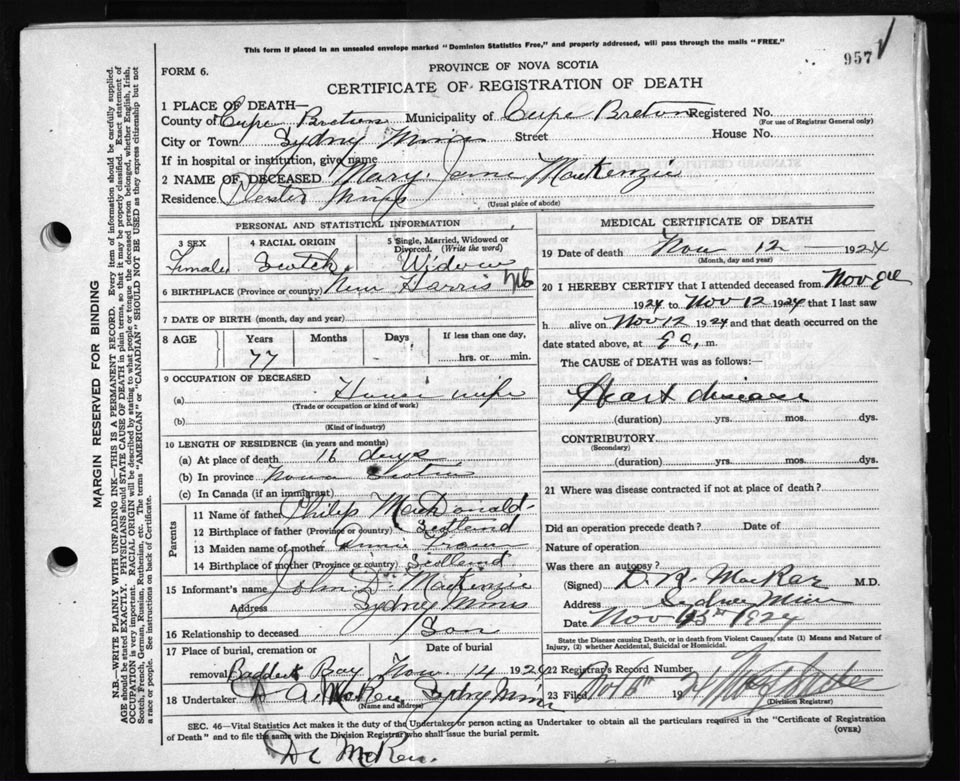 This form if placed in an unsealed envelope marked "Dominion Statistics Free," and properly addressed, will pass through the mails "FREE."
957
PROVINCE OF NOVA SCOTIA
FORM 6.
CERTIFICATE OF REGISTRATION OF DEATH
1 PLACE OF DEATH—
County of Cape Breton Municipality of Cape Breton Registered No.
(For use of Registrar General only)
City or Town Sydney Mines Street House No.
If in hospital or institution, give name
2 NAME OF DECEASED Mary Jane MacKenzie
Residence
(Usual place of abode)
PERSONAL AND STATISTICAL INFORMATION
3 SEX
Female
4 RACIAL ORIGIN
Scotch
5 Single, Married, Widowed or Divorced. (Write the word)
Widow
6 BIRTHPLACE (Province or country) New Harris NS
7 DATE OF BIRTH (month, day and year)
8 AGE Years Months Days If less than one day,
77 hrs. or min.
9 OCCUPATION OF DECEASED
(a) House wife
(Trade or occupation or kind of work)
(b)
(Kind of industry)
10 LENGTH OF RESIDENCE (in years and months)
(a) At place of death 16 days
(b) In province Nova Scotia
(c) In Canada (if an immigrant)
Parents
11 Name of father Philip MacDonald
12 Birthplace of father (Province or country) Scotland
13 Maiden name of mother Annie
14 Birthplace of mother (Province or country) Scotland
15 Informant's name John D. MacKenzie
Address Sydney Mines
16 Relationship to deceased Son
17 Place of burial, cremation or Date of burial
removal Baddeck Bay Nov. 14 1924
18 Undertaker A. A. McRae Sydney Mines
(Name and address)
MEDICAL CERTIFICATE OF DEATH
19 Date of death Nov 12 1924
(Month, day and year)
20 I HEREBY CERTIFY that I attended deceased from Nov
1924 to Nov 12 1924 that I last saw
h alive on Nov 12 1924 and that death occurred on the
date stated above, at a, m.
The CAUSE of DEATH was as follows:
Heart disease
(duration) yrs. mos. dys.
CONTRIBUTORY
(Secondary)
(duration) yrs. mos. dys.
21 Where was disease contracted if not at place of death?
Did an operation precede death? Date of
Nature of operation
Was there an autopsy?
(Signed) D. R. MacRae M.D.
Address Sydney Mines
Date Nov 1924
State the Disease causing Death, or in death from Violent Causes, state (1) Means and Nature of Injury, (2) whether Accidental, Suicidal or Homicidal.
22 Registrar's Record Number
23 Filed 192
(Division Registrar)
SEC. 46—Vital Statistics Act makes it the duty of the Undertaker or person acting as Undertaker to obtain all the particulars required in the "Certificate of Registration
of Death" and to file the same with the Division Registrar who shall issue the burial permit.
(OVER)
Dr McRae.
MARGIN RESERVED FOR BINDING
N.B.—WRITE PLAINLY WITH UNFADING INK—THIS IS A PERMANENT RECORD. Every item of information should be carefully supplied.
AGE should be stated EXACTLY. PHYSICIANS should STATE CAUSE OF DEATH in plain terms, so that it may be properly classified. Exact statement of
OCCUPATION is very important. RACIAL ORIGIN will be described by stating to what people or tongue the deceased person belonged, whether English, Irish,
Scotch, French, German, Russian, Ruthenian, etc. The terms "AMERICAN" or "CANADIAN" SHOULD NOT BE USED as they express citizenship but not
a race or people. See instructions on back of Certificate.